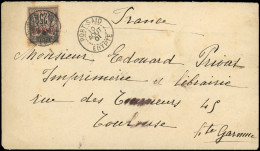 France
PORT-SAID
EGYPTE
Monsieur Edouard Privat
Imprimerie et librairie
rue des Tourneurs 45
Toulouse
Hte Garonne